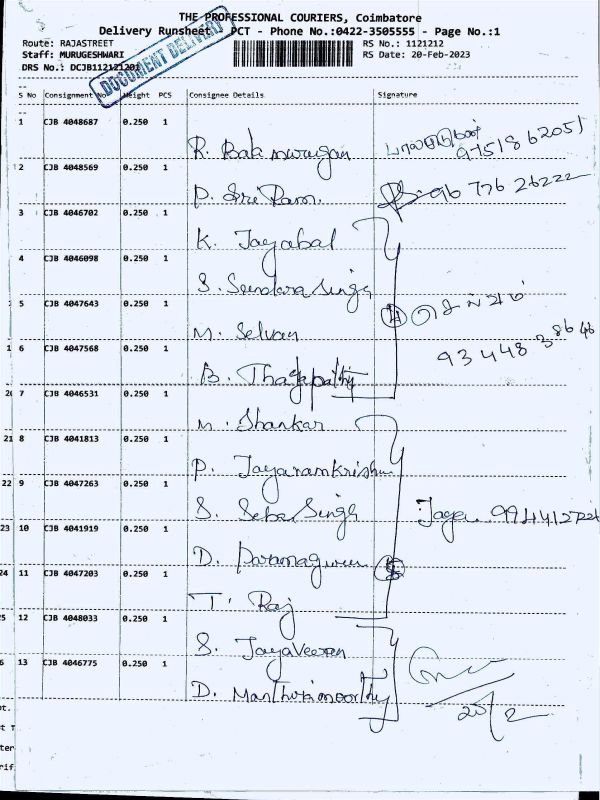 THE PROFESSIONAL COURIERS, Coimbatore
Delivery Runsheet PCT - Phone No.:0422-3505555 - Page No.:1
Route: RAJASTREET RS No.: 1121212
Staff: MURUGESHWARI RS Date: 20-Feb-2023
DRS No.: DCJB112121201
DOCUMENT DELIVERY
S No Consignment No Weight PCS Consignee Details Signature
1 CJB 4048687 0.250 1
R. Balamurugan 97518 62051
2 CJB 4048569 0.250 1
P. Sri Ram. 96 776 26222
3 CJB 4046702 0.250 1
K. Jayabal
4 CJB 4046098 0.250 1
S. Sundara Singh
5 CJB 4047643 0.250 1
M. Selvan 4
6 CJB 4047568 0.250 1
93 448 38646
B. Thagapathy
7 CJB 4046531 0.250 1
M. Shankar
8 CJB 4041813 0.250 1
P. Jayaramkrishn
9 CJB 4047263 0.250 1
S. Seba Singh
10 CJB 4041919 0.250 1
D. Paramaguru
11 CJB 4047203 0.250 1
T. Raj
12 CJB 4048033 0.250 1
S. JayaVeeran
13 CJB 4046775 0.250 1
D. 20/2